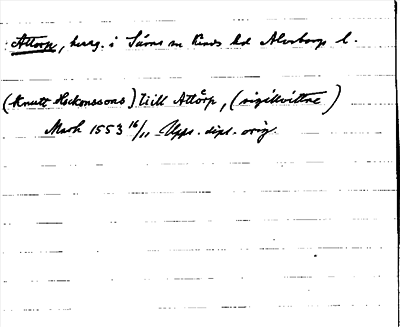 Attorp, herrg. i Särns sn Kinds hd Älvsborgs l.
(Knutt Hockonssons) tiill Attŏrp, (sigillvittne)
Mark 1553 16/11 Upps. dipl. orig.